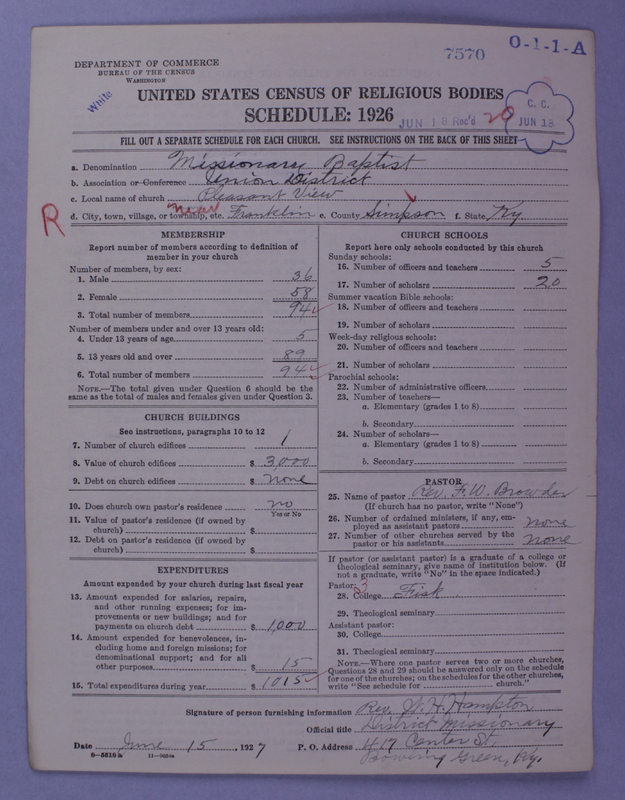 7570
O-1-1-A
DEPARTMENT OF COMMERCE
BUREAU OF THE CENSUS
WASHINGTON
White
UNITED STATES CENSUS OF RELIGIOUS BODIES
SCHEDULE: 1926
JUN 18 Rec'd
29
C. C.
JUN 18
FILL OUT A SEPARATE SCHEDULE FOR EACH CHURCH. SEE INSTRUCTIONS ON THE BACK OF THIS SHEET
a. Denomination Missionary Baptist
b. Association or Conference Union District
c. Local name of church Pleasant View
R
d. City, town, village, or township, etc. near Franklin e. County Simpson f. State Ky.
MEMBERSHIP
Report number of members according to definition of
member in your church
Number of members, by sex:
1. Male 36
2. Female 58
3. Total number of members 94
Number of members under and over 13 years old:
4. Under 13 years of age 5
5. 13 years old and over 89
6. Total number of members 94
NOTE.—The total given under Question 6 should be the
same as the total of males and females given under Question 3.
CHURCH BUILDINGS
See instructions, paragraphs 10 to 12
7. Number of church edifices 1
8. Value of church edifices $ 3,000
9. Debt on church edifices $ none
10. Does church own pastor's residence no
Yes or No
11. Value of pastor's residence (if owned by
church) $
12. Debt on pastor's residence (if owned by
church) $
EXPENDITURES
Amount expended by your church during last fiscal year
13. Amount expended for salaries, repairs,
and other running expenses; for im-
provements or new buildings; and for
payments on church debt $ 1,000
14. Amount expended for benevolences, in-
cluding home and foreign missions; for
denominational support; and for all
other purposes $ 15
15. Total expenditures during year $ 1015
CHURCH SCHOOLS
Report here only schools conducted by this church
Sunday schools:
16. Number of officers and teachers 5
17. Number of scholars 20
Summer vacation Bible schools:
18. Number of officers and teachers
19. Number of scholars
Week-day religious schools:
20. Number of officers and teachers
21. Number of scholars
Parochial schools:
22. Number of administrative officers
23. Number of teachers—
a. Elementary (grades 1 to 8)
b. Secondary
24. Number of scholars—
a. Elementary (grades 1 to 8)
b. Secondary
PASTOR
25. Name of pastor Rev. F. W. Browder
(If church has no pastor, write "None")
26. Number of ordained ministers, if any, em-
ployed as assistant pastors none
27. Number of other churches served by the
pastor or his assistants none
If pastor (or assistant pastor) is a graduate of a college or
theological seminary, give name of institution below. (If
not a graduate, write "No" in the space indicated.)
Pastor:
28. College Fisk
29. Theological seminary
Assistant pastor:
30. College
31. Theological seminary
NOTE.—Where one pastor serves two or more churches,
Questions 28 and 29 should be answered only on the schedule
for one of the churches; on the schedules for the other churches,
write "See schedule for church."
Signature of person furnishing information Rev. W. H. Hampton
Official title District Missionary
Date June 15, 1927 P. O. Address 417 Center St.
Bowling Green, Ky.